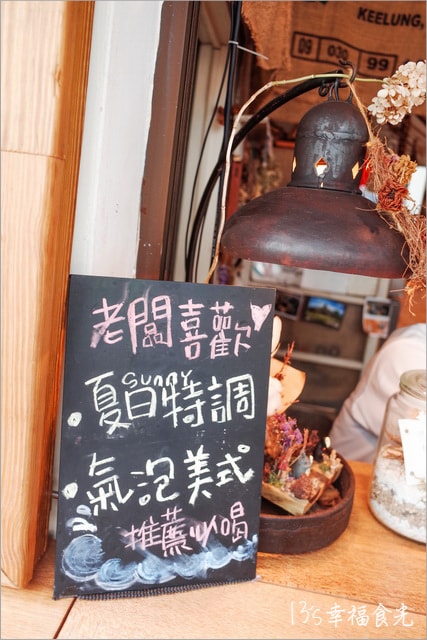 KEELUNG,
09 030 99
老闆喜歡
sunny
夏日特調
氣泡美式
推薦必喝
13's幸福食光